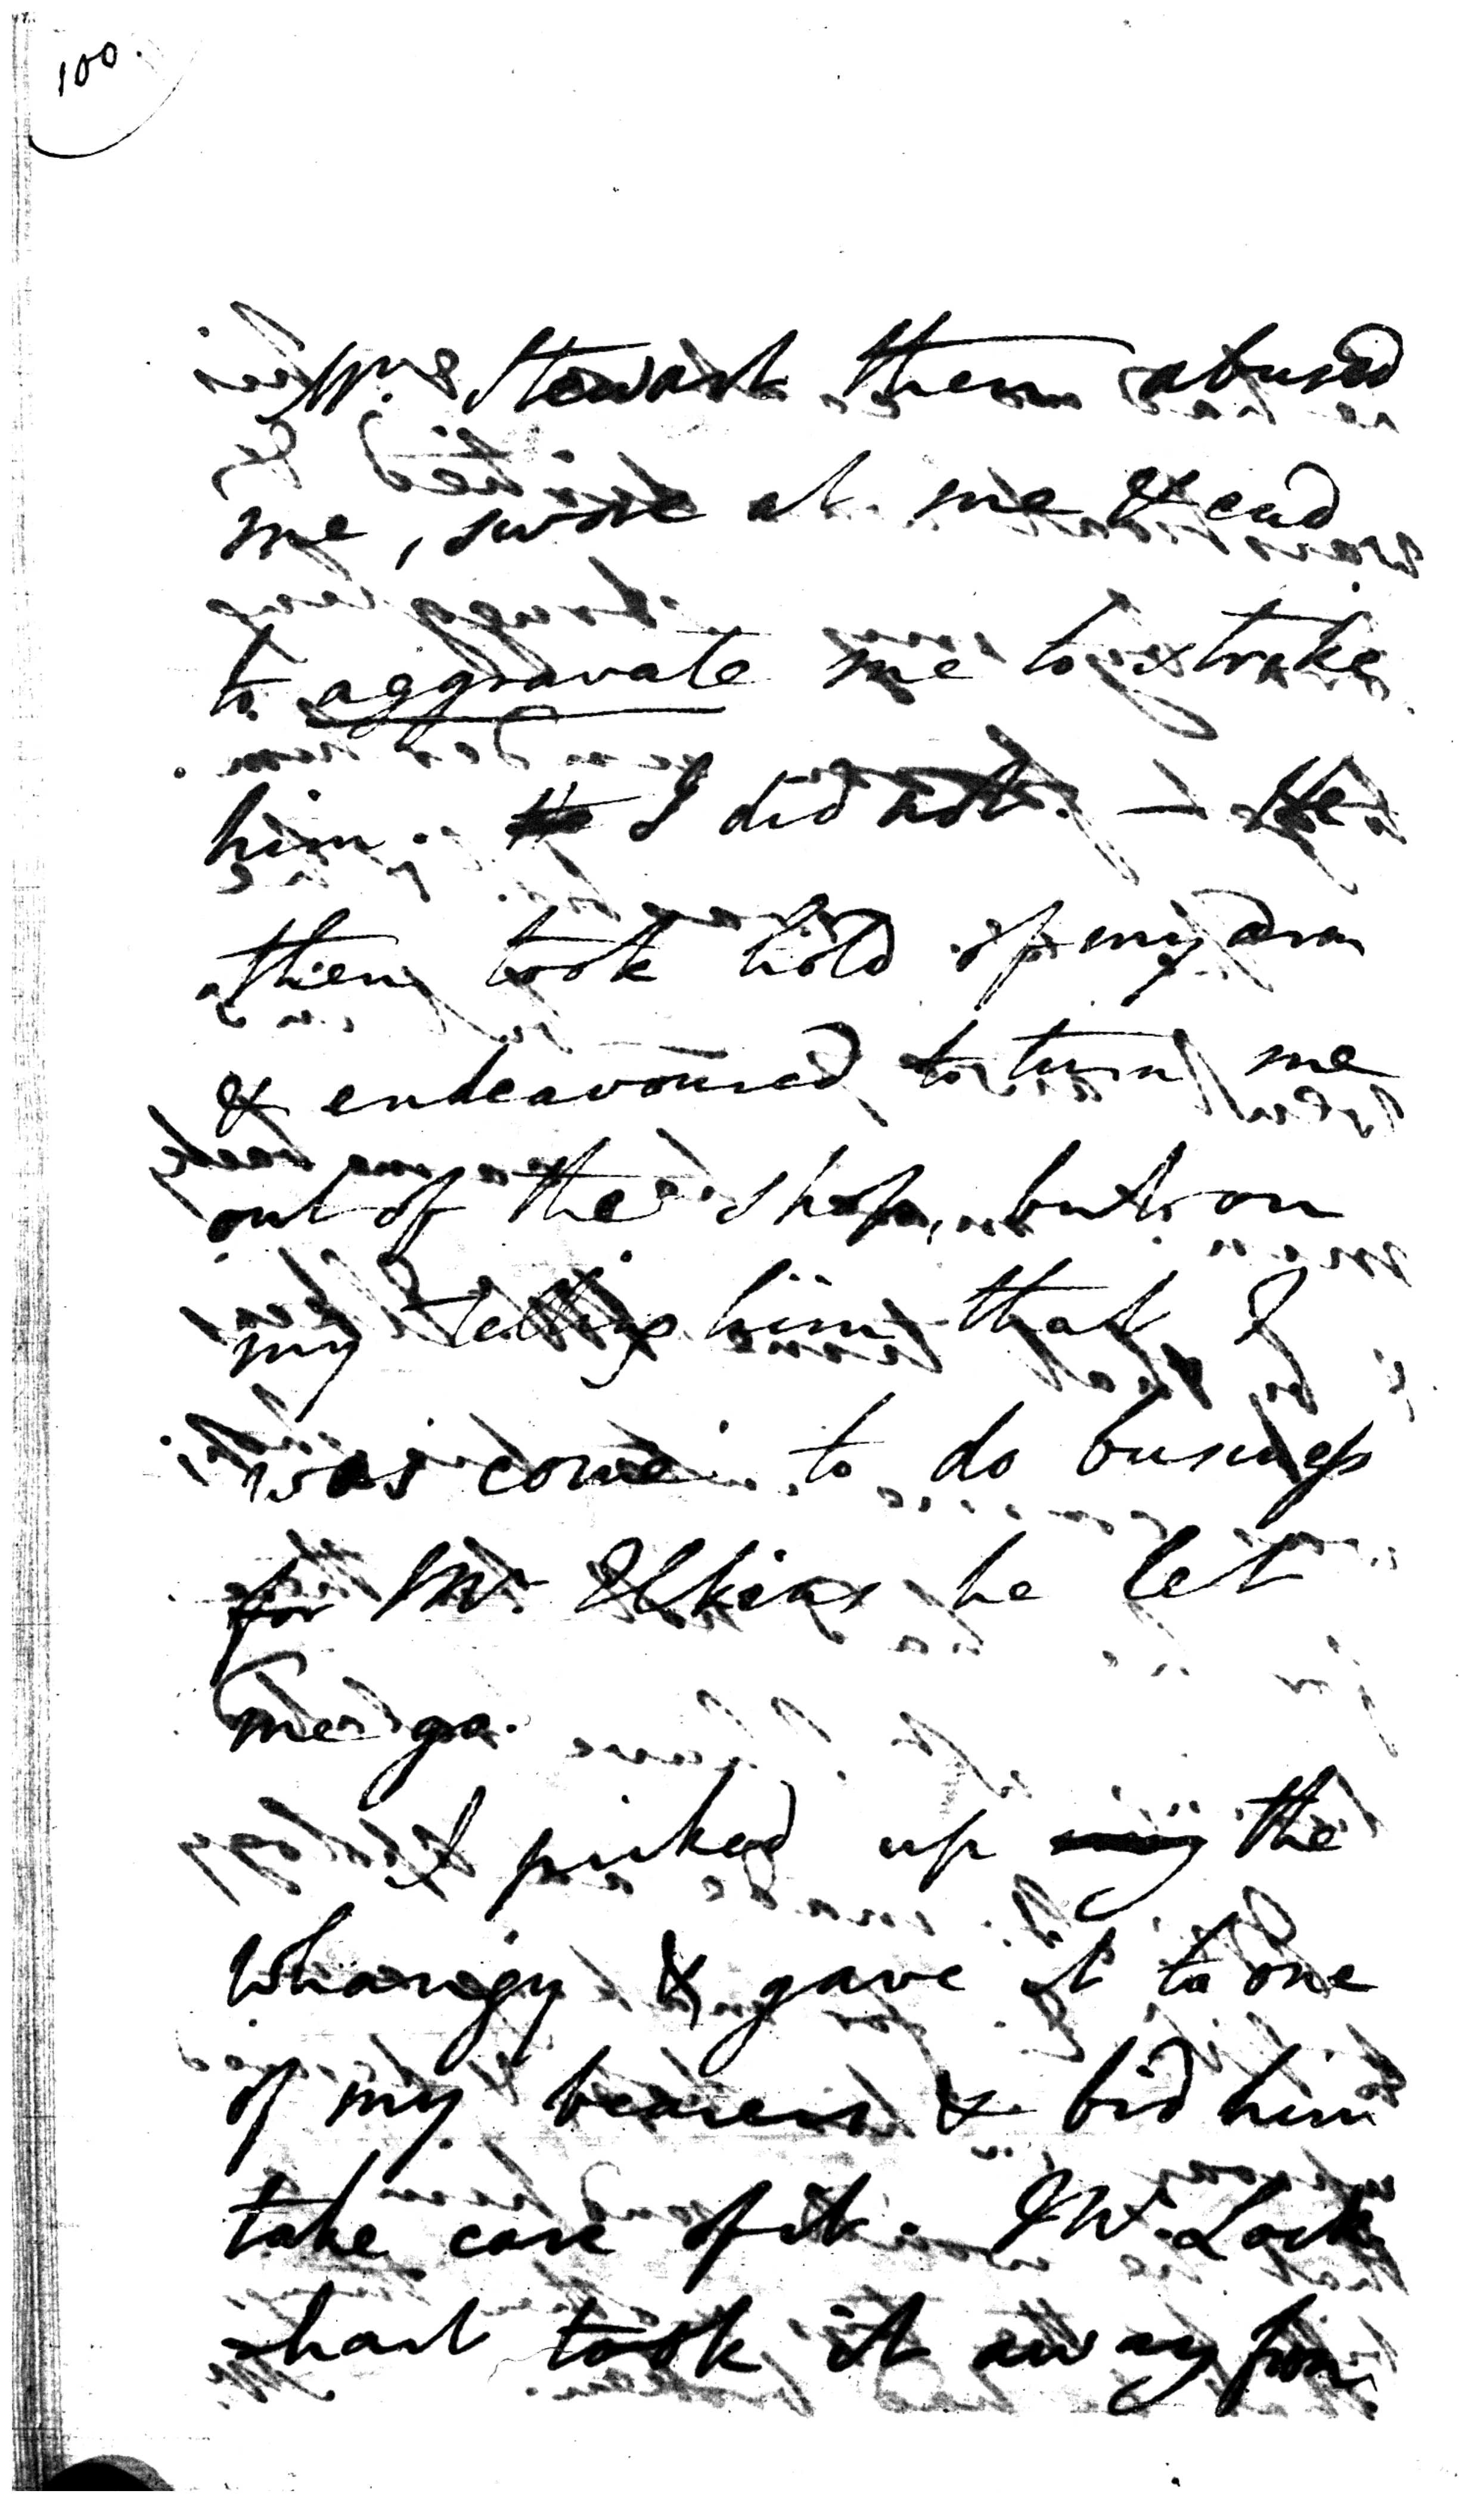 100.
Mr. Stewart then abused
me, swore at me & end
to aggravate me to stroke
him. I did not. — He
then took hold of my arm
& endeavoured to turn me
out of the shop, but on
my telling him that I
was come to do business
for Mr. Elkins he let
me go.
I picked up my the
Whangy & gave it to one
of my bearers & bid him
take care of it. J W. Lock
hart took it away from